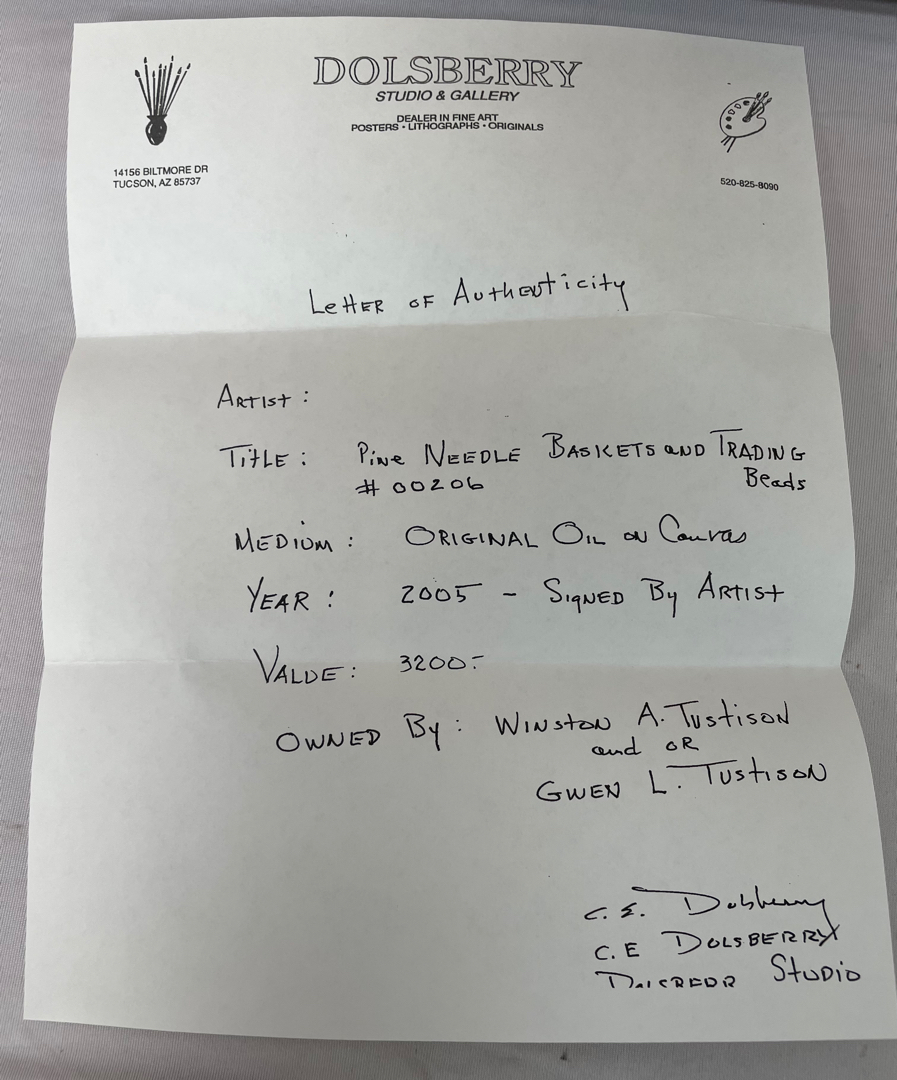 DOLSBERRY
STUDIO & GALLERY
DEALER IN FINE ART
POSTERS • LITHOGRAPHS • ORIGINALS
14156 BILTMORE DR
TUCSON, AZ 85737
520-825-8090
Letter of Authenticity
Artist:
Title: Pine Needle Baskets and Trading
# 00206 Beads
Medium: Original Oil on Canvas
Year: 2005 - Signed By Artist
Value: 3200.-
Owned By: Winston A. Tustison
and or
Gwen L. Tustison
C. E. Dolsberry
C.E Dolsberry
Studio